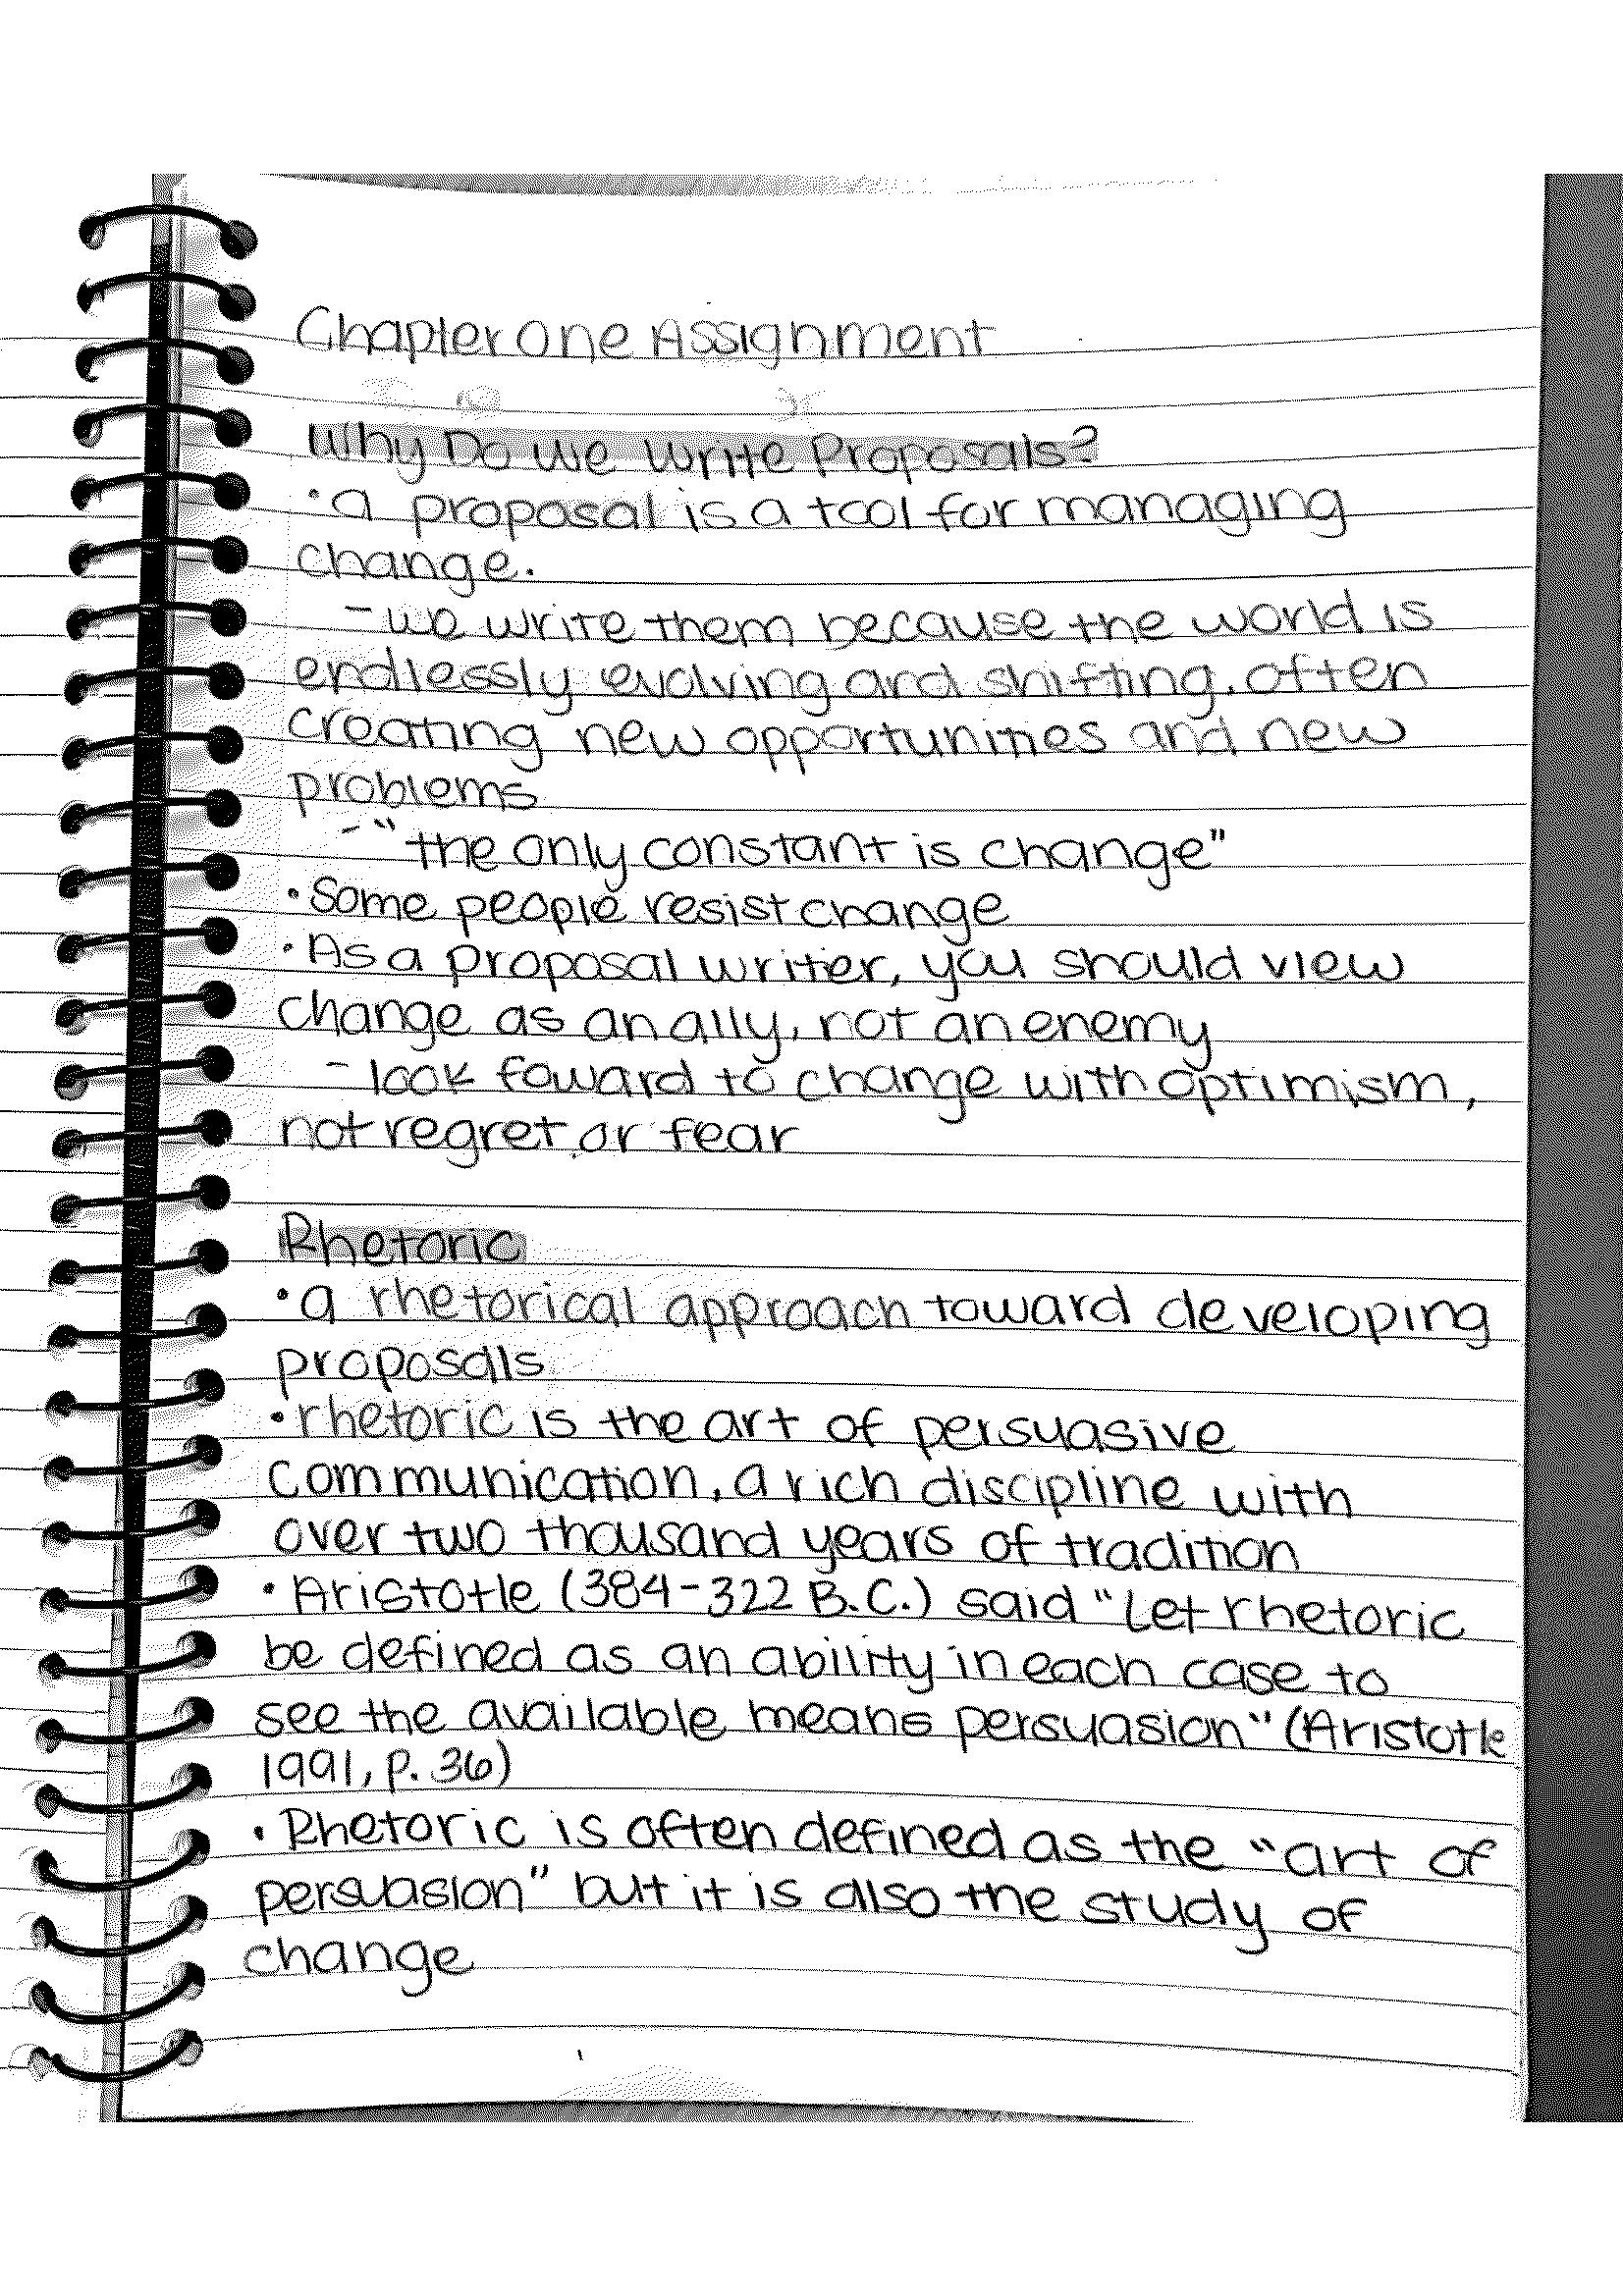 Chapter One Assignment
Why Do We Write Proposals?
• a proposal is a tool for managing
change.
- we write them because the world is
endlessly evolving and shifting, often
creating new opportunities and new
problems
- "the only constant is change"
• Some people resist change
• As a proposal writer, you should view
change as an ally, not an enemy
- look foward to change with optimism,
not regret or fear
Rhetoric
• a rhetorical approach toward developing
proposals
• rhetoric is the art of persuasive
communication, a rich discipline with
over two thousand years of tradition
• Aristotle (384-322 B.C.) said "Let rhetoric
be defined as an ability in each case to
see the available means persuasion" (Aristotle
1991, p. 36)
• Rhetoric is often defined as the "art of
persuasion" but it is also the study of
change